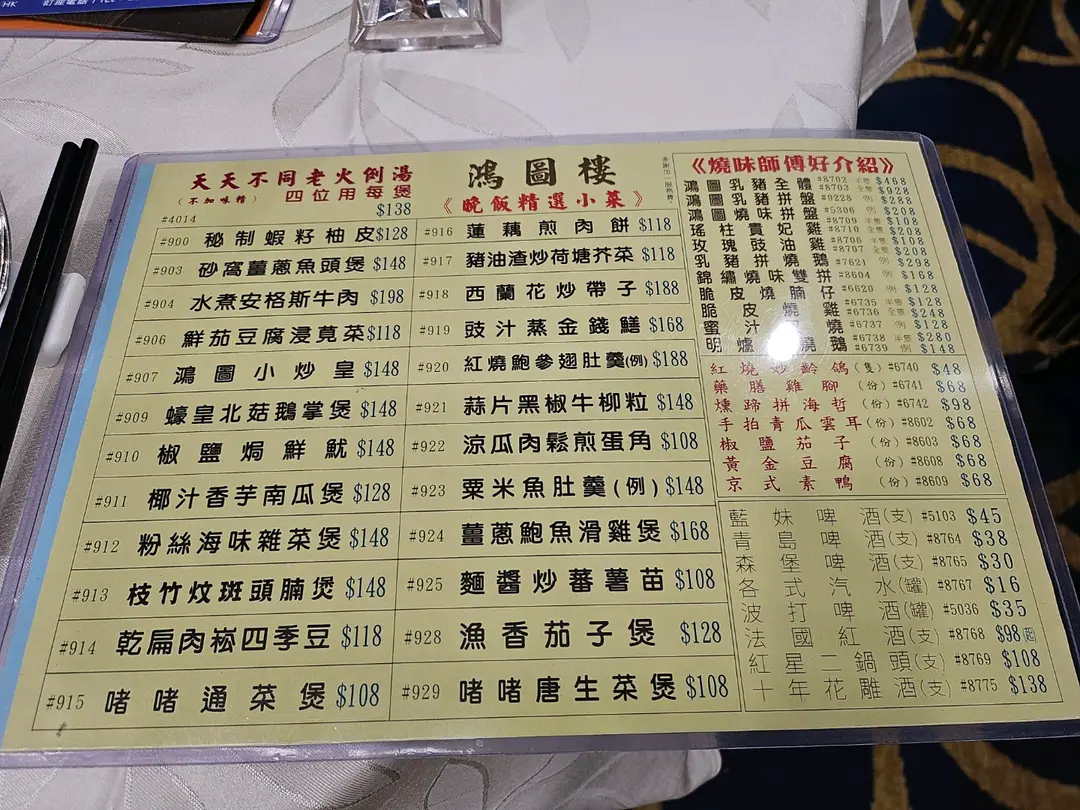 HK
天天不同老火例湯
(不加味精) 四位用每煲
#4014 $138
鴻圖樓
《晚飯精選小菜》
#900 秘制蝦籽柚皮 $128
#903 砂窩薑蔥魚頭煲 $148
#904 水煮安格斯牛肉 $198
#906 鮮茄豆腐浸莧菜 $118
#907 鴻圖小炒皇 $148
#909 蠔皇北菇鵝掌煲 $148
#910 椒鹽焗鮮魷 $148
#911 椰汁香芋南瓜煲 $128
#912 粉絲海味雜菜煲 $148
#913 枝竹炆斑頭腩煲 $148
#914 乾扁肉崧四季豆 $118
#915 啫啫通菜煲 $108
#916 蓮藕煎肉餅 $118
#917 豬油渣炒荷塘芥菜 $118
#918 西蘭花炒帶子 $188
#919 豉汁蒸金錢鱔 $168
#920 紅燒鮑參翅肚羹(例) $188
#921 蒜片黑椒牛柳粒 $148
#922 涼瓜肉鬆煎蛋角 $108
#923 粟米魚肚羹(例) $148
#924 薑蔥鮑魚滑雞煲 $168
#925 麵醬炒蕃薯苗 $108
#928 漁香茄子煲 $128
#929 啫啫唐生菜煲 $108
《燒味師傅好介紹》
鴻圖乳豬全體 #8702 半隻 $468
#8703 全隻 $928
鴻圖乳豬拼盤 #9228 例 $288
鴻圖燒味拼盤 #5306 例 $208
瑤柱貴妃雞 #8709 半隻 $108
#8710 全隻 $208
玫瑰豉油雞 #8706 半隻 $108
#8707 全隻 $208
乳豬拼燒鵝 #7621 例 $298
錦繡燒味雙拼 #8604 例 $168
脆皮燒腩仔 #6620 例 $128
脆皮燒雞 #6735 半隻 $128
#6736 全隻 $248
蜜汁 燒 #6737 例 $128
明爐燒鵝 #6738 半隻 $280
#6739 例 $148
紅燒妙齡鴿 (隻) #6740 $48
藥膳雞腳 (份) #6741 $68
燻蹄拼海哲 (份) #6742 $98
手拍青瓜雲耳 (份) #8602 $68
椒鹽茄子 (份) #8603 $68
黃金豆腐 (份) #8608 $68
京式素鴨 (份) #8609 $68
藍妹啤酒(支) #5103 $45
青島啤酒(支) #8764 $38
森堡啤酒(支) #8765 $30
各式汽水(罐) #8767 $16
波打啤酒(罐) #5036 $35
法國紅酒(支) #8768 $98起
紅星二鍋頭(支) #8769 $108
十年花雕酒(支) #8775 $138